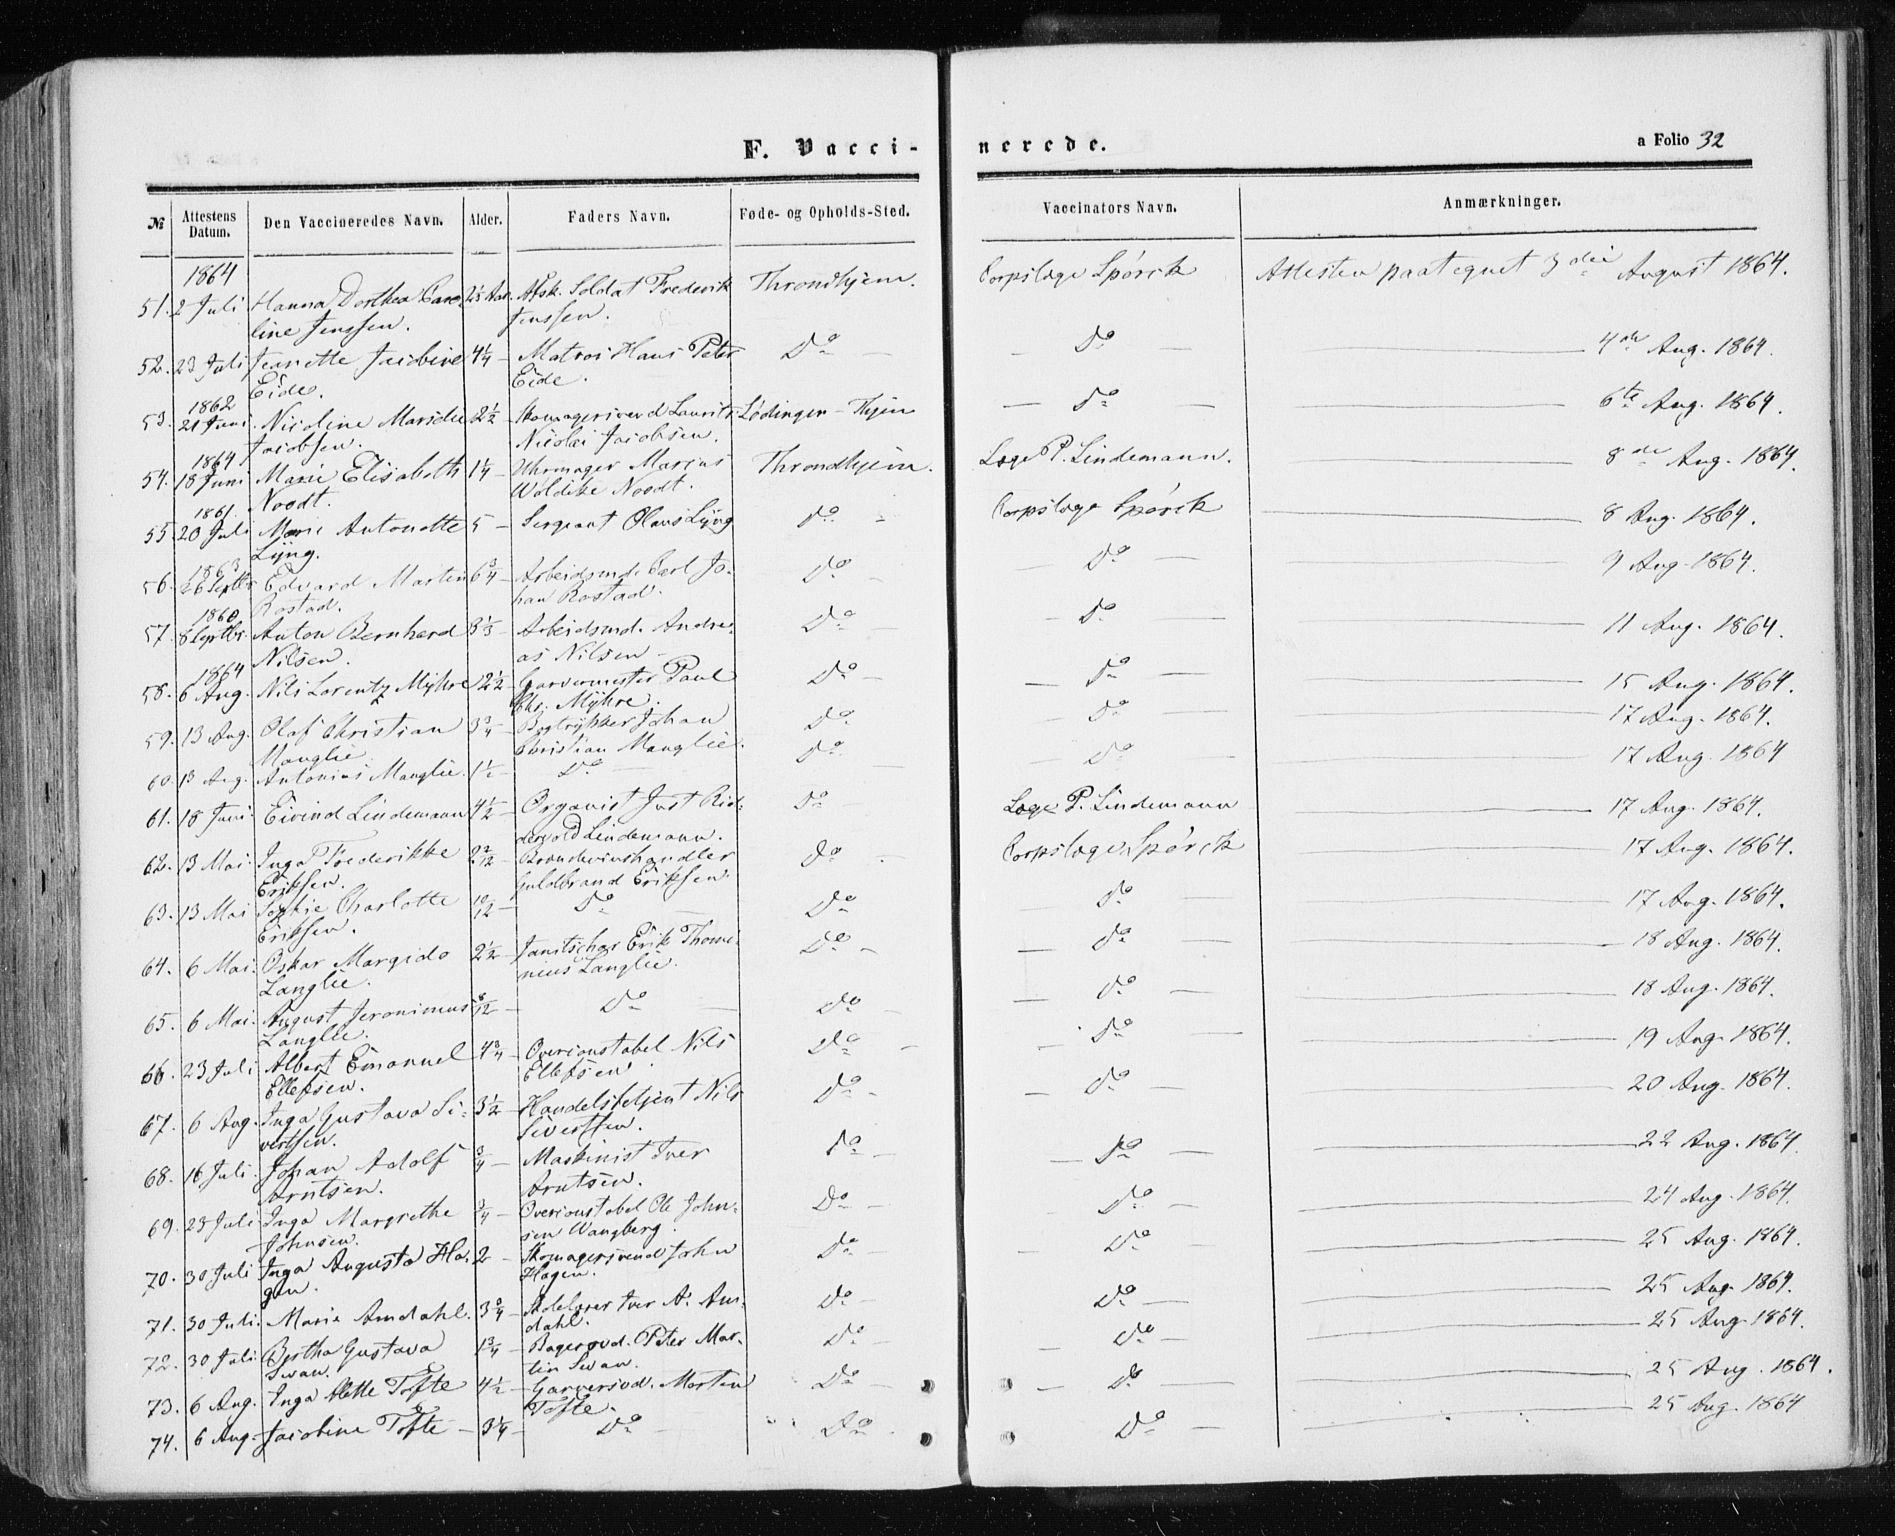 F. Vacci- nerede. a Folio 32
№ Attestens Datum. Den Vaccineredes Navn. Alder. Faders Navn. Føde- og Opholds-Sted. Vaccinators Navn. Anmærkninger.
1864
51. 2 Juli Hanna Dorthea Caro- 2⅓ Aar. Afsk. Soldat Frederik Throndhjem. Corpslæge Spørck Attesten paategnet 3die August 1864.
line Jenssen. Jenssen.
52. 23 Juli Jeanette Jacobine 4¼ — Matros Hans Peter Do — — Do — 4de Aug. 1864.
Eide. Eide.
1862
53. 21 Juni. Nicoline Marselie 2½ Skomagersvend Laurits Lødingen - Thjem — Do — 6te Aug. 1864.
Jacobsen. Nicolai Jacobsen.
1864
54. 18 Juni Marie Elisabeth 1¼ — Uhrmager Marius Throndhjem. Læge P. Lindemann. 8de Aug. 1864.
Noodt. Wøldike Noodt.
1861.
55. 20 Juli Marie Antonette 5 — Sergeant Olaus Lÿng Do - Corpslæge Spørck 8 Aug. 1864.
Lÿng.
1863
56. 26 Septbr Edvard Martin 6¾ — Arbeidsmd. Carl Jo- Do - Do — 9 Aug. 1864.
Rostad. han Rostad.
1860
57. 8 Septbr. Anton Bernhard 3⅓ — Arbeidsmd. Andre- Do — — Do — 11 Aug. 1864.
Nilsen. as Nilsen —
1864
58. 6 Aug. Nils Lorentz Mÿhre 2½ — Garvermester Paul Do - — Do — 15 Aug. 1864.
Chr. Mÿhre.
59. 13 Aug. Olaf Christian 3¾ — Bogtrÿkker Johan Do — Do — 17 Aug. 1864.
Manglie Christian Manglie.
60. 13 Aug. Antonius Manglie. 1½ — Do — Do — — Do — 17 Aug. 1864
61. 18 Juni. Eivind Lindemann 4½ — Organist Just Rid- Do — Læge P. Lindemann 17 Aug. 1864.
dervold Lindemann.
62. 13 Mai. Inga Frederikke 2 2/12 — Brændeviinshandler Do . Corpslæge Spørck 17 Aug. 1864.
Eriksen. Guldbrand Eriksen.
63. 13 Mai Sophie Charlotte 10/12 — Do — Do — Do — 17 Aug. 1864.
Eriksen.
64. 6 Mai. Oskar Margido 2½ — Janitschar Erik Thomi- Do — — Do — 18 Aug. 1864.
Langlie. neus Langlie.
65. 6 Mai. August Jeronimus 8/12 — Do — Do — — Do — 18 Aug. 1864.
Langlie.
66. 23 Juli Albert Emanuel 4¾ — Overconstabel Nils Do — Do — 19 Aug. 1864.
Ellefsen. Ellefsen.
67. 6 Aug. Inga Gustava Si- 3½ — Handelsbetjent Nils Do - — Do — 20 Aug. 1864.
vertsen. Sivertsen.
68. 16 Juli. Johan Adolf ¾ — Maskinist Iver Do — — Do — 22 Aug. 1864.
Arntsen. Arntsen.
69. 23 Juli Inga Margrethe ¾ — Overconstabel Ole John- Do — — Do — 24 Aug. 1864.
Johnsen. sen Wangberg.
70. 30 Juli Inga Augusta Ha- 2 — Skomagersvend John Do — — Do — 25 Aug. 1864.
gen. Hagen.
71. 30 Juli. Marie Amdahl. 3¾ — Iver A. Am- Do — Do — 25 Aug. 1864.
dahl.
72. 30 Juli Bertha Gustava 1¾ — Bagersvd. Peter Mar- Do — — Do — 25 Aug. 1864.
Svan. tin Svan.
73. 6 Aug. Inga Alette Tofte 4½ — Garversvd. Morten Do — — Do — 25 Aug. 1864.
Tofte.
74. 6 Aug. Jacobine Tofte — 3¼ — Do — Do — Do — 25 Aug. 1864